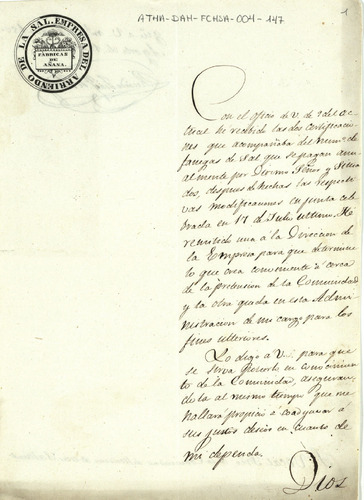 ATHA-DAH-FCHSA-004-147
1
DE LA SAL. EMPRESA DEL ARRIENDO
FABRICAS DE AÑANA.
Con el oficio de V. de 1 del ac
tual he recibido las dos Certificacio
nes que acompañaba del num.o de
fanegas de Sal que se pagan anu
almente por Diezmo
das, despues de hechas las respecti
vas modificaciones en junta cele
brada en 17 de Julio ultimo. He
remitido una á la Direccion de
la Empresa para que determine
lo que crea conveniente á cerca
de la pretension de la Comunidad
y la otra queda en esta Admi
nistracion de mi cargo para los
fines ulteriores.
Lo digo á V. para que
se sirva ponerlo en conocimien
to de la Comunidad, aseguran
dola al mismo tiempo que me
hallará propicio á coadyubar á
sus justos deseos en cuanto de
mi dependa.
Dios